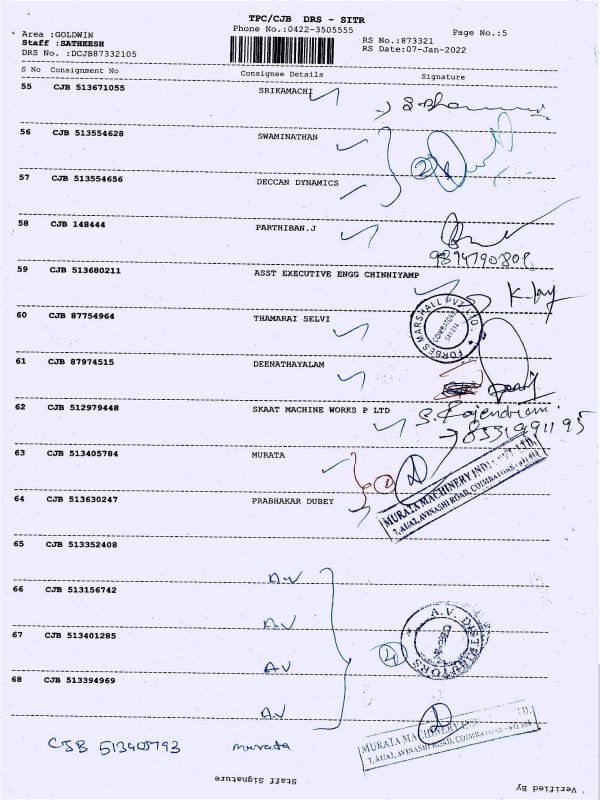 TPC/CJB DRS - SITR
Area :GOLDWIN
Phone No.:0422-3505555
Page No.:5
Staff :SATHEESH
RS No.:873321
DRS No. :DCJB87332105
RS Date:07-Jan-2022
S No Consignment No Consignee Details Signature
55 CJB 513671055 SRIKAMACHI
56 CJB 513554628 SWAMINATHAN
2
57 CJB 513554656 DECCAN DYNAMICS
58 CJB 148444 PARTHIBAN.J
9894790808
59 CJB 513680211 ASST EXECUTIVE ENGG CHINNIYAMP
FORBES MARSHALL PVT. LTD.
COIMBATORE
641 014
60 CJB 87754964 THAMARAI SELVI
61 CJB 87974515 DEENATHAYALAM
62 CJB 512979448 SKAAT MACHINE WORKS P LTD
S. Rajendran
8531991195
63 CJB 513405784 MURATA
MURATA MACHINERY INDIA PVT. LTD.
7, AVINASHI ROAD, COIMBATORE - 641 014
64 CJB 513630247 PRABHAKAR DUBEY
65 CJB 513352408
A.V
66 CJB 513156742
A.V
A.V DISTRIBUTORS
67 CJB 513401285
4
A.V
68 CJB 513394969
A.V
CJB 513405793 murata
MURATA MACHINERY
AVINASHI ROAD, COIMBATORE - 641 014
Staff Signature
Verified By